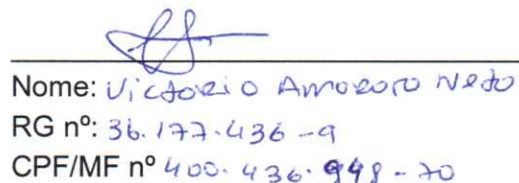 Nome: Victorio Amororo Neto
RG nº: 36.177.436-9
CPF/MF nº 400.436.948-70